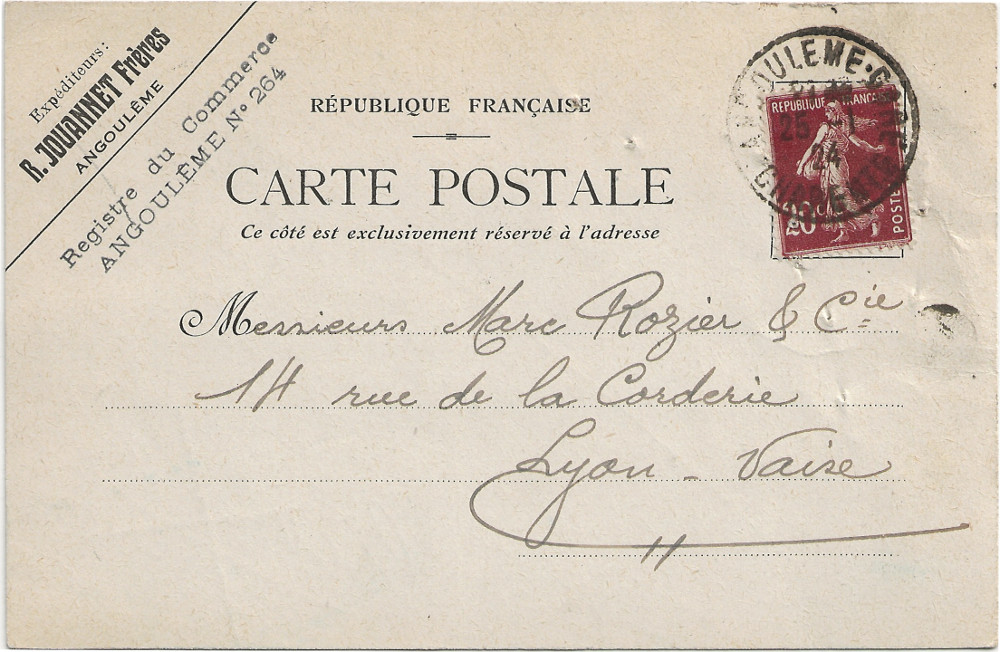 Expéditeurs:
R. JOUANNET Frères
ANGOULÊME
Registre du Commerce
ANGOULÊME No 264
RÉPUBLIQUE FRANÇAISE
CARTE POSTALE
Ce côté est exclusivement réservé à l'adresse
ANGOULEME-GARE
25 -1
24
CHARENTE
REPUBLIQUE FRANÇAISE
20c
POSTES
Messieurs Marc Rozier & Cie
14 rue de la Corderie
Lyon - Vaise